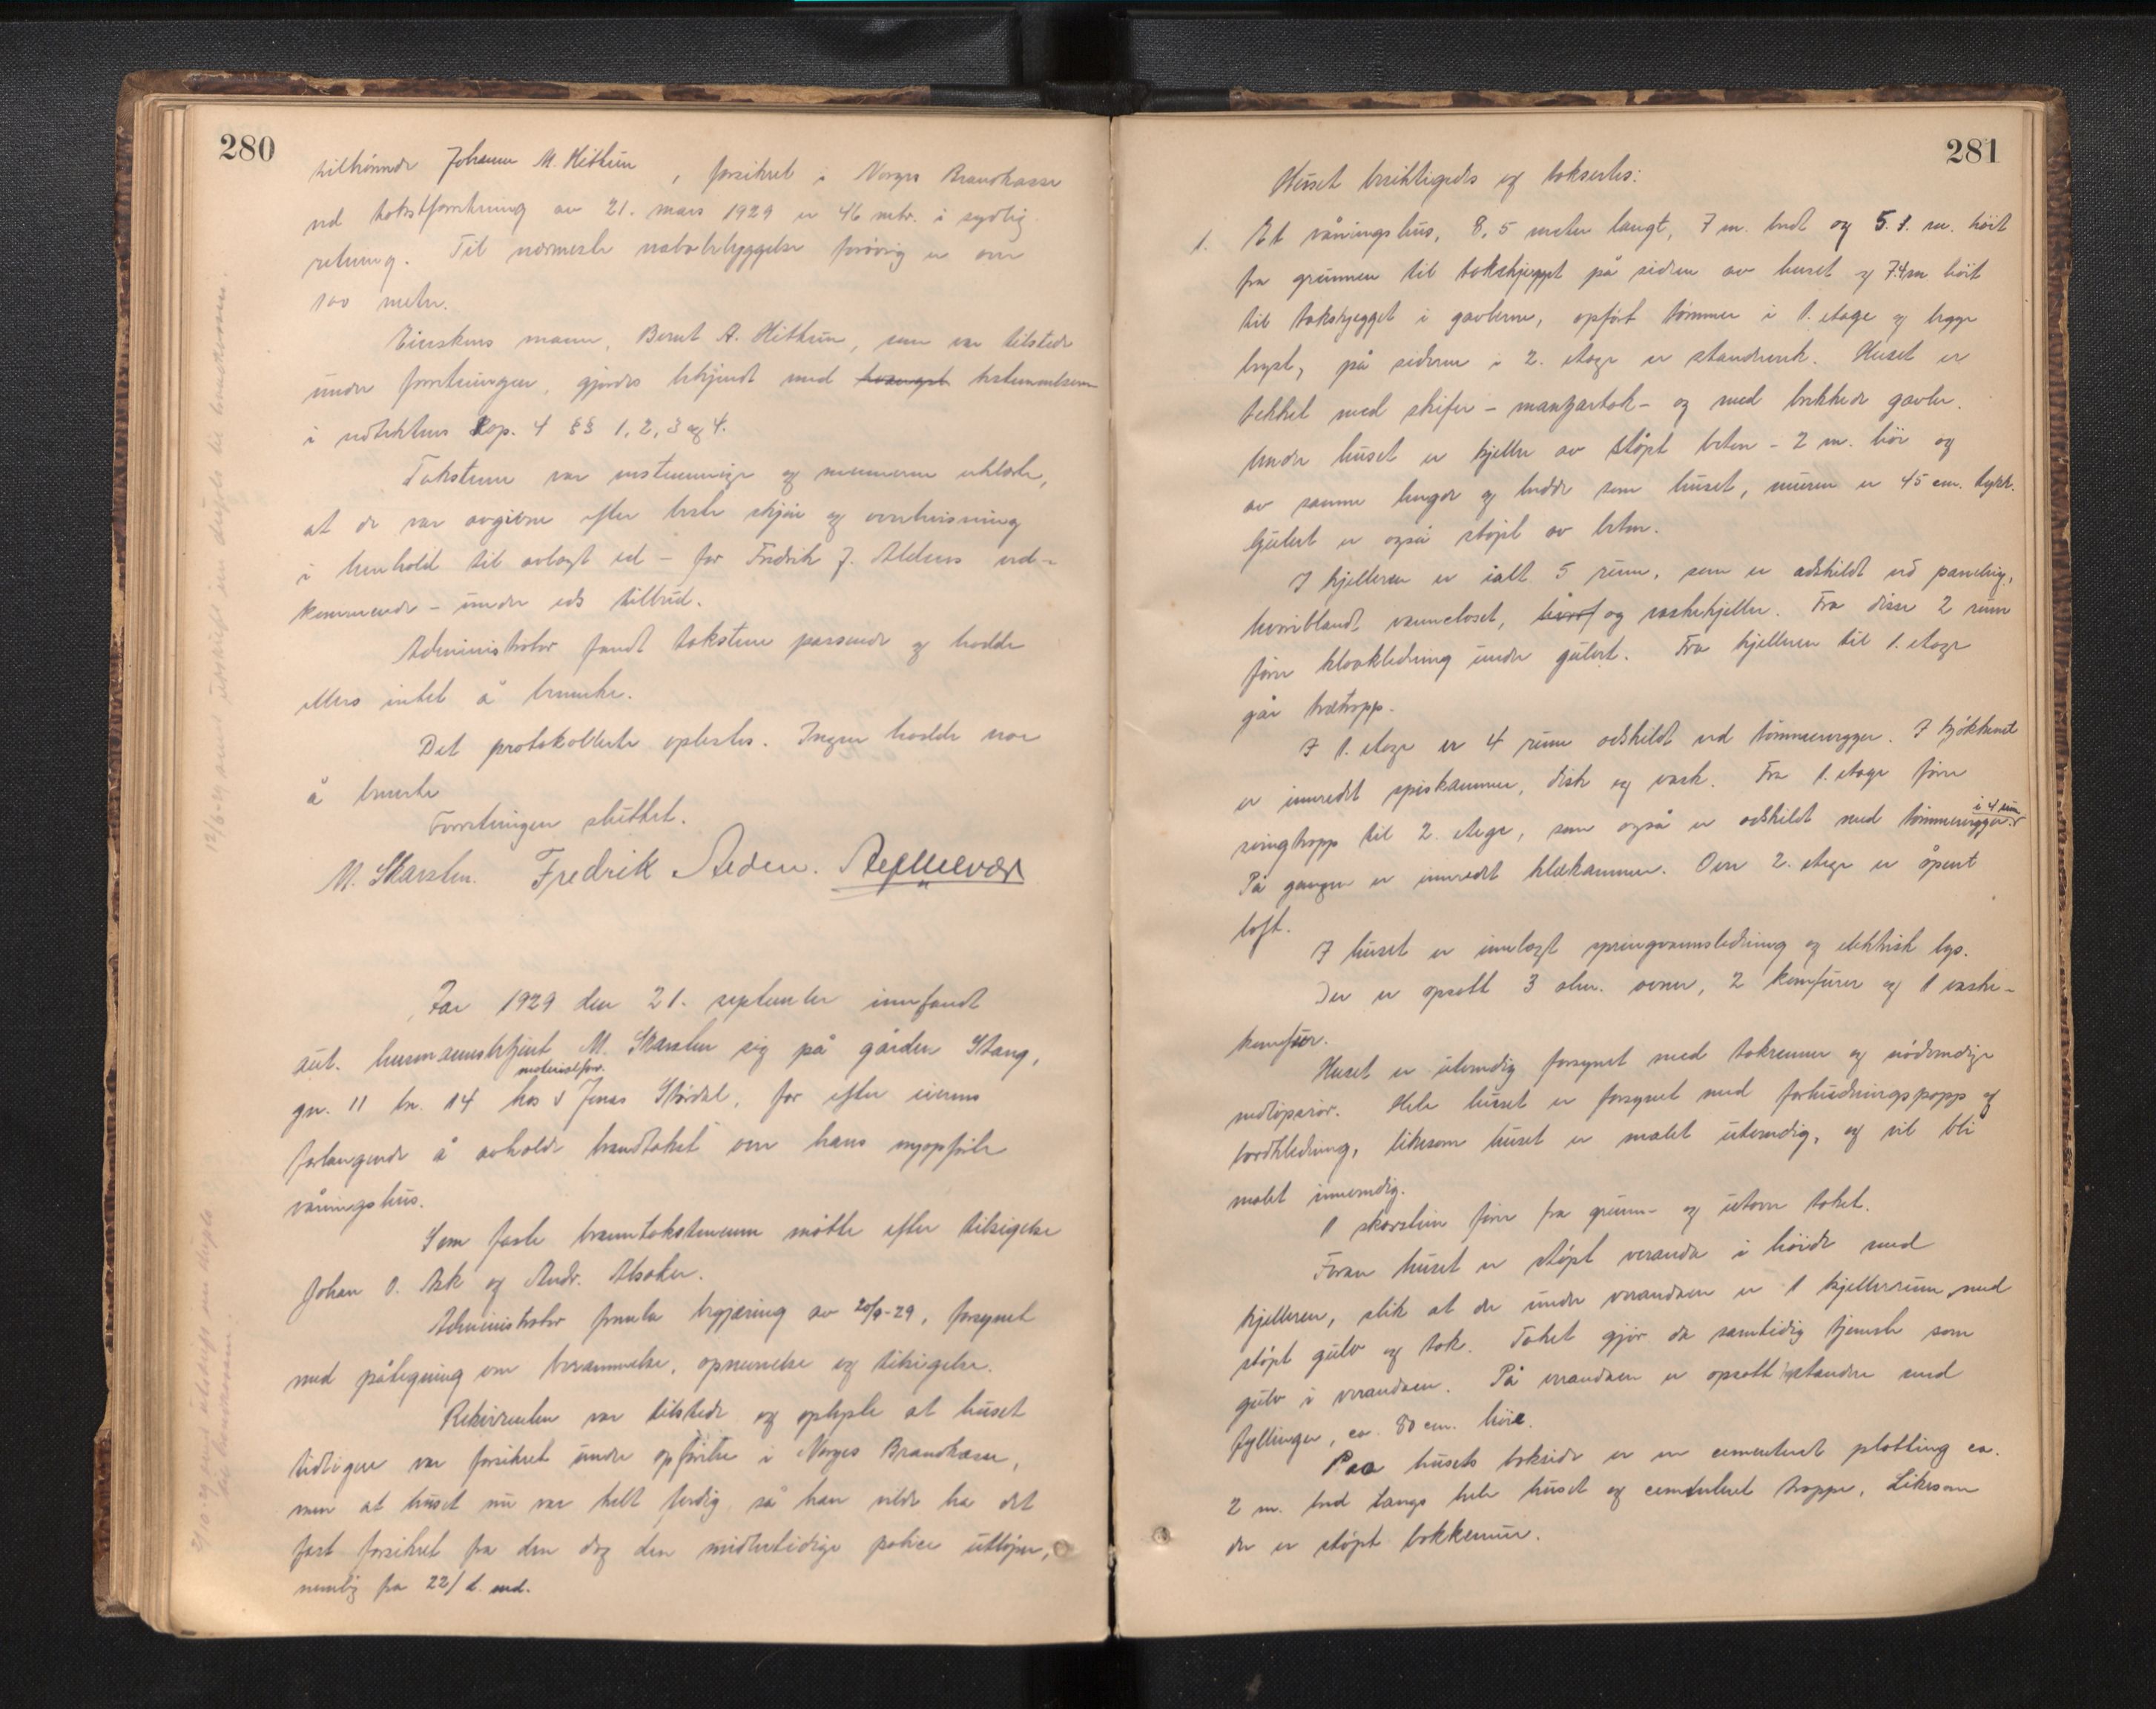 280
tilhørende Johanne M. Hitkun, forsikret i Norges Brandkasse
ved takstforretning av 21. mars 1929 er 46 mtr. i sydlig
retning. Til nærmeste nabobebyggelse forøvrig er over
100 meter.
Eierskens mann, Bernt A. Hitkun, som var tilstede
under forretningen, gjordes bekjendt med bestemmelsene
i vedtektens kap. 4 §§ 1, 2, 3 og 4.
Takstene var enstemmige og mennene erklærte,
at de var avgivne efter beste skjøn og overbevisning
i henhold til avlagt ed - for Fredrik J. Aldens ved-
kommende - under eds tilbud.
Administrator fandt takstene passende og hadde
ellers intet å bemerke.
Det protokollerte oplestes. Ingen hadde noe
å bemerke
Forretningen sluttet.
M. Skarsten. Fredrik Alden.
12/6-29 sendt utskrift in duplo til branskassen.
Aar 1929 den 21. september innfandt
aut. lensmannsbetjent M. Skarsten sig på gården Stang,
gn. 11 bn. 14 hos materialforv. Jonas Stårdal, for efter eierens
forlangende å avholde brandtakst over hans nyopførte
våningshus.
Som faste branntakstmenn møtte efter tilsigelse
Johan O. Ask og Andr. Alsaker.
Administrator fremla begjæring av 20/9-29, forsynet
med påtegning om berammelse, opnevnelse og tilsigelse.
Rekvirenten var tilstede og oplyste at huset
tidligere var forsikret under opførelse i Norges Brandkasse,
men at huset nu var helt ferdig så han vilde ha det
fast forsikret fra den dag den midlertidige police utløper,
nemlig fra 22/ d. md.
2/10 29 sendt utskrift in duplo
til branskassen.
281
Huset besiktigedes og takseredes:
1. Et våningshus, 8,5 meter langt, 7 m. bredt og 5.1. m. høit
fra grunnen til takskjegget på siden av huset og 7.4 m høit
til takskjegget i gavlerne, opført tømmer i 1. etage og begge
bryst, på siderne i 2. etage er standverk. Huset er
tekket med skifer - mansartak - og med brekkede gavler.
Under huset er kjeller av støpt beton - 2 m. høi og
av samme lengde og bredde som huset, muren er 45 cm. tykk.
Gulvet er også støpt av beton.
I kjelleren er ialt 5 rum, som er adskildt ved paneling,
hvoriblandt vannclosett, og vaskekjeller. Fra disse 2 rum
fører kloakledning under gulvet. Fra kjelleren til 1. etage
går tretrapp.
I 1. etage er 4 rum adskildt ved tømmervegger. I kjøkkenet
er innredet spiskammer, disk og vask. Fra 1. etage fører
svingtrapp til 2. etage, som også er adskildt med tømmervegger i 4 rum.
På gangen er innredet klækammer. Over 2. etage er åpent
loft.
I huset er innlagt springvannsledning og elektrisk lys.
Der er opsatt 3 alm. ovner, 2 komfurer og 1 vaske-
komfur.
Huset er utvendig forsynet med takrenner og nødvendige
nedløpsrør. Hele huset er forsynet med forhudningspapp og
bordkledning, likesom huset er malet utvendig, og vil bli
malet innvendig.
1 skorstein fører fra grunn- og utover taket.
Foran huset er støpt veranda i høide med
kjelleren, slik at der under verandaen er 1 kjellerrum med
støpt gulv og tak. Taket gjør da samtidig tjeneste som
gulv i verandaen. På verandaen er opsatt standere med
fyllinger, ca. 80 cm. høie.
Paa husets bakside er en cementeret platting ca.
2 m. bred langs hele huset og cementeret trappe, likesom
der er støpt bakkemur.